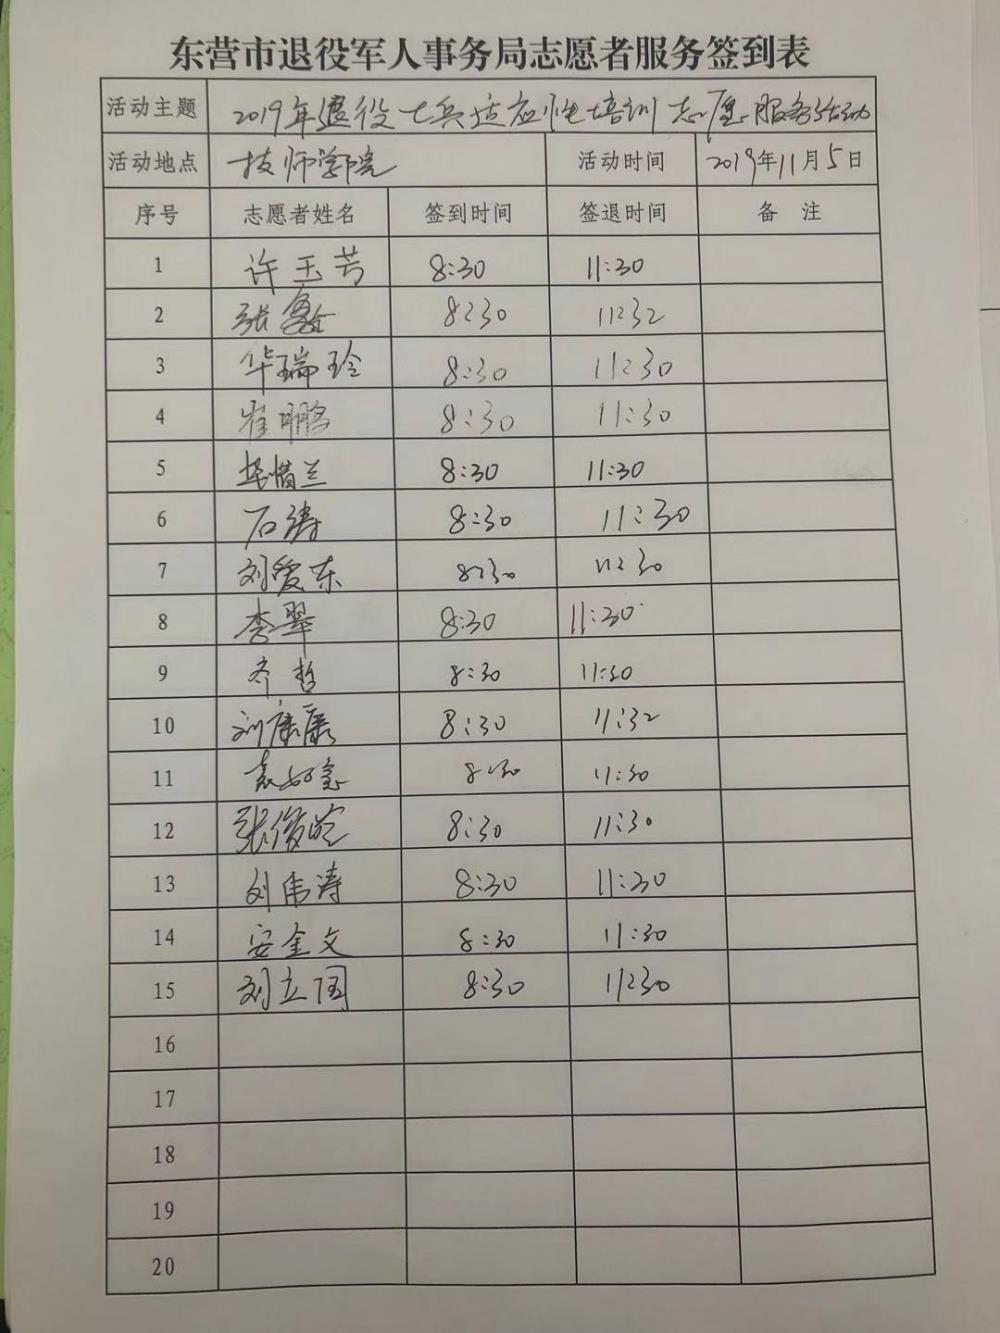 东营市退役军人事务局志愿者服务签到表
活动主题 2019年退役士兵适应性培训志愿服务活动
活动地点 技师学院 活动时间 2019年11月5日
序号 志愿者姓名 签到时间 签退时间 备 注
1 许玉芳 8:30 11:30
2 张 8:30 11:32
3 华瑞玲 8:30 11:30
4 崔鹏 8:30 11:30
5 8:30 11:30
6 石涛 8:30 11:30
7 刘爱东 8:30 11:30
8 李翠 8:30 11:30
9 齐哲 8:30 11:30
10 刘康康 8:30 11:32
11 8:30 11:30
12 张俊 8:30 11:30
13 刘伟涛 8:30 11:30
14 安金文 8:30 11:30
15 刘立国 8:30 11:30
16
17
18
19
20